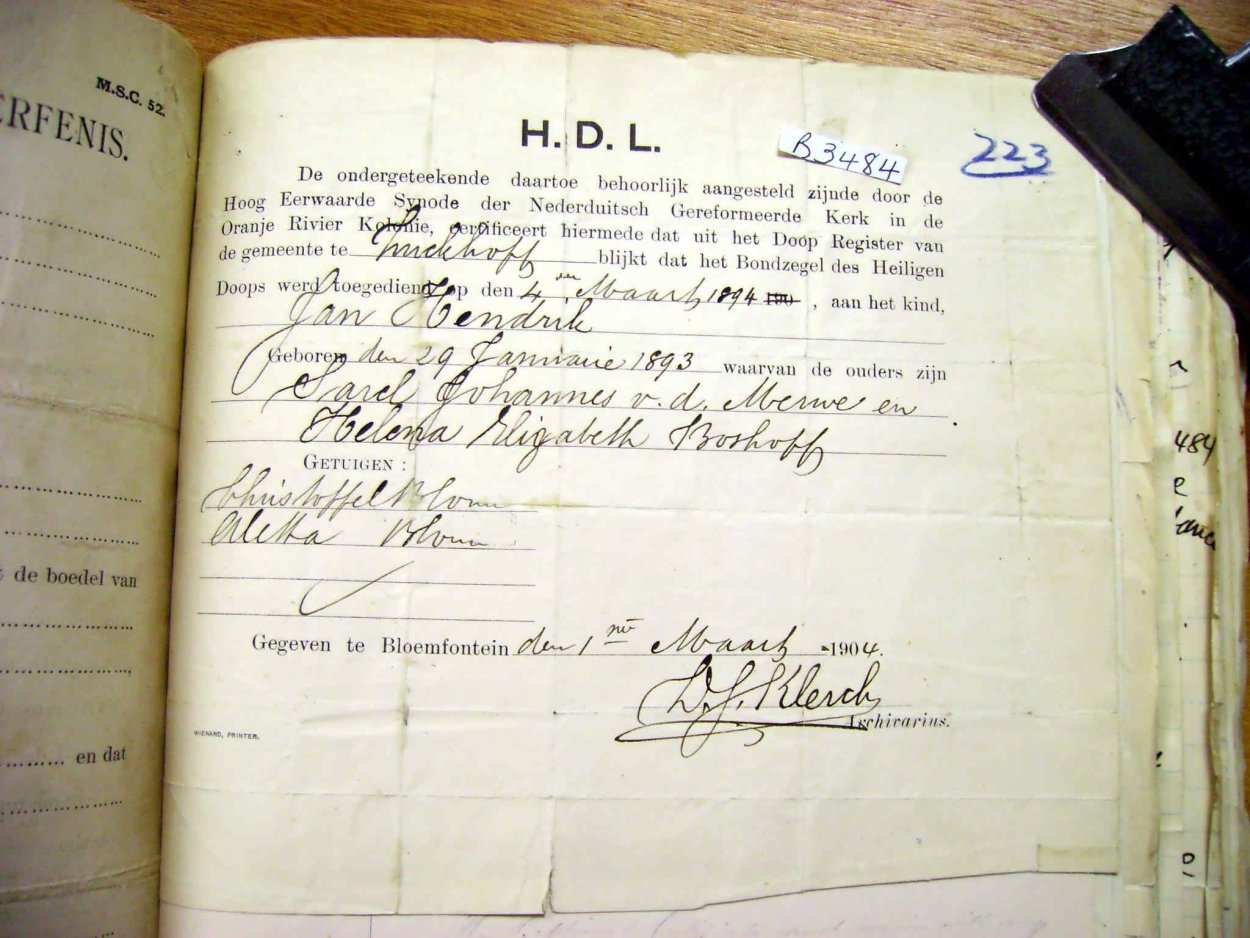 M.S.C. 52.
ERFENIS.
de boedel van
en dat
H. D. L.
B3484
223
De ondergeteekende daartoe behoorlijk aangesteld zijnde door de
Hoog Eerwaarde Synode der Nederduitsch Gereformeerde Kerk in de
Oranje Rivier Kolonie, certificeert hiermede dat uit het Doop Register van
de gemeente te Luckhoff blijkt dat het Bondzegel des Heiligen
Doops werd toegediend op den 4 en Maart 1894 190 , aan het kind,
Jan Hendrik
Geboren den 29 Januarie 1893 waarvan de ouders zijn
Sarel Johannes v. d. Merwe en
Helena Elizabeth Boshoff
GETUIGEN :
Christoffel Blom
Aletta Blom
Gegeven te Bloemfontein den 1 Maart 1904.
Archivarius.
WIENAND, PRINTER.
484